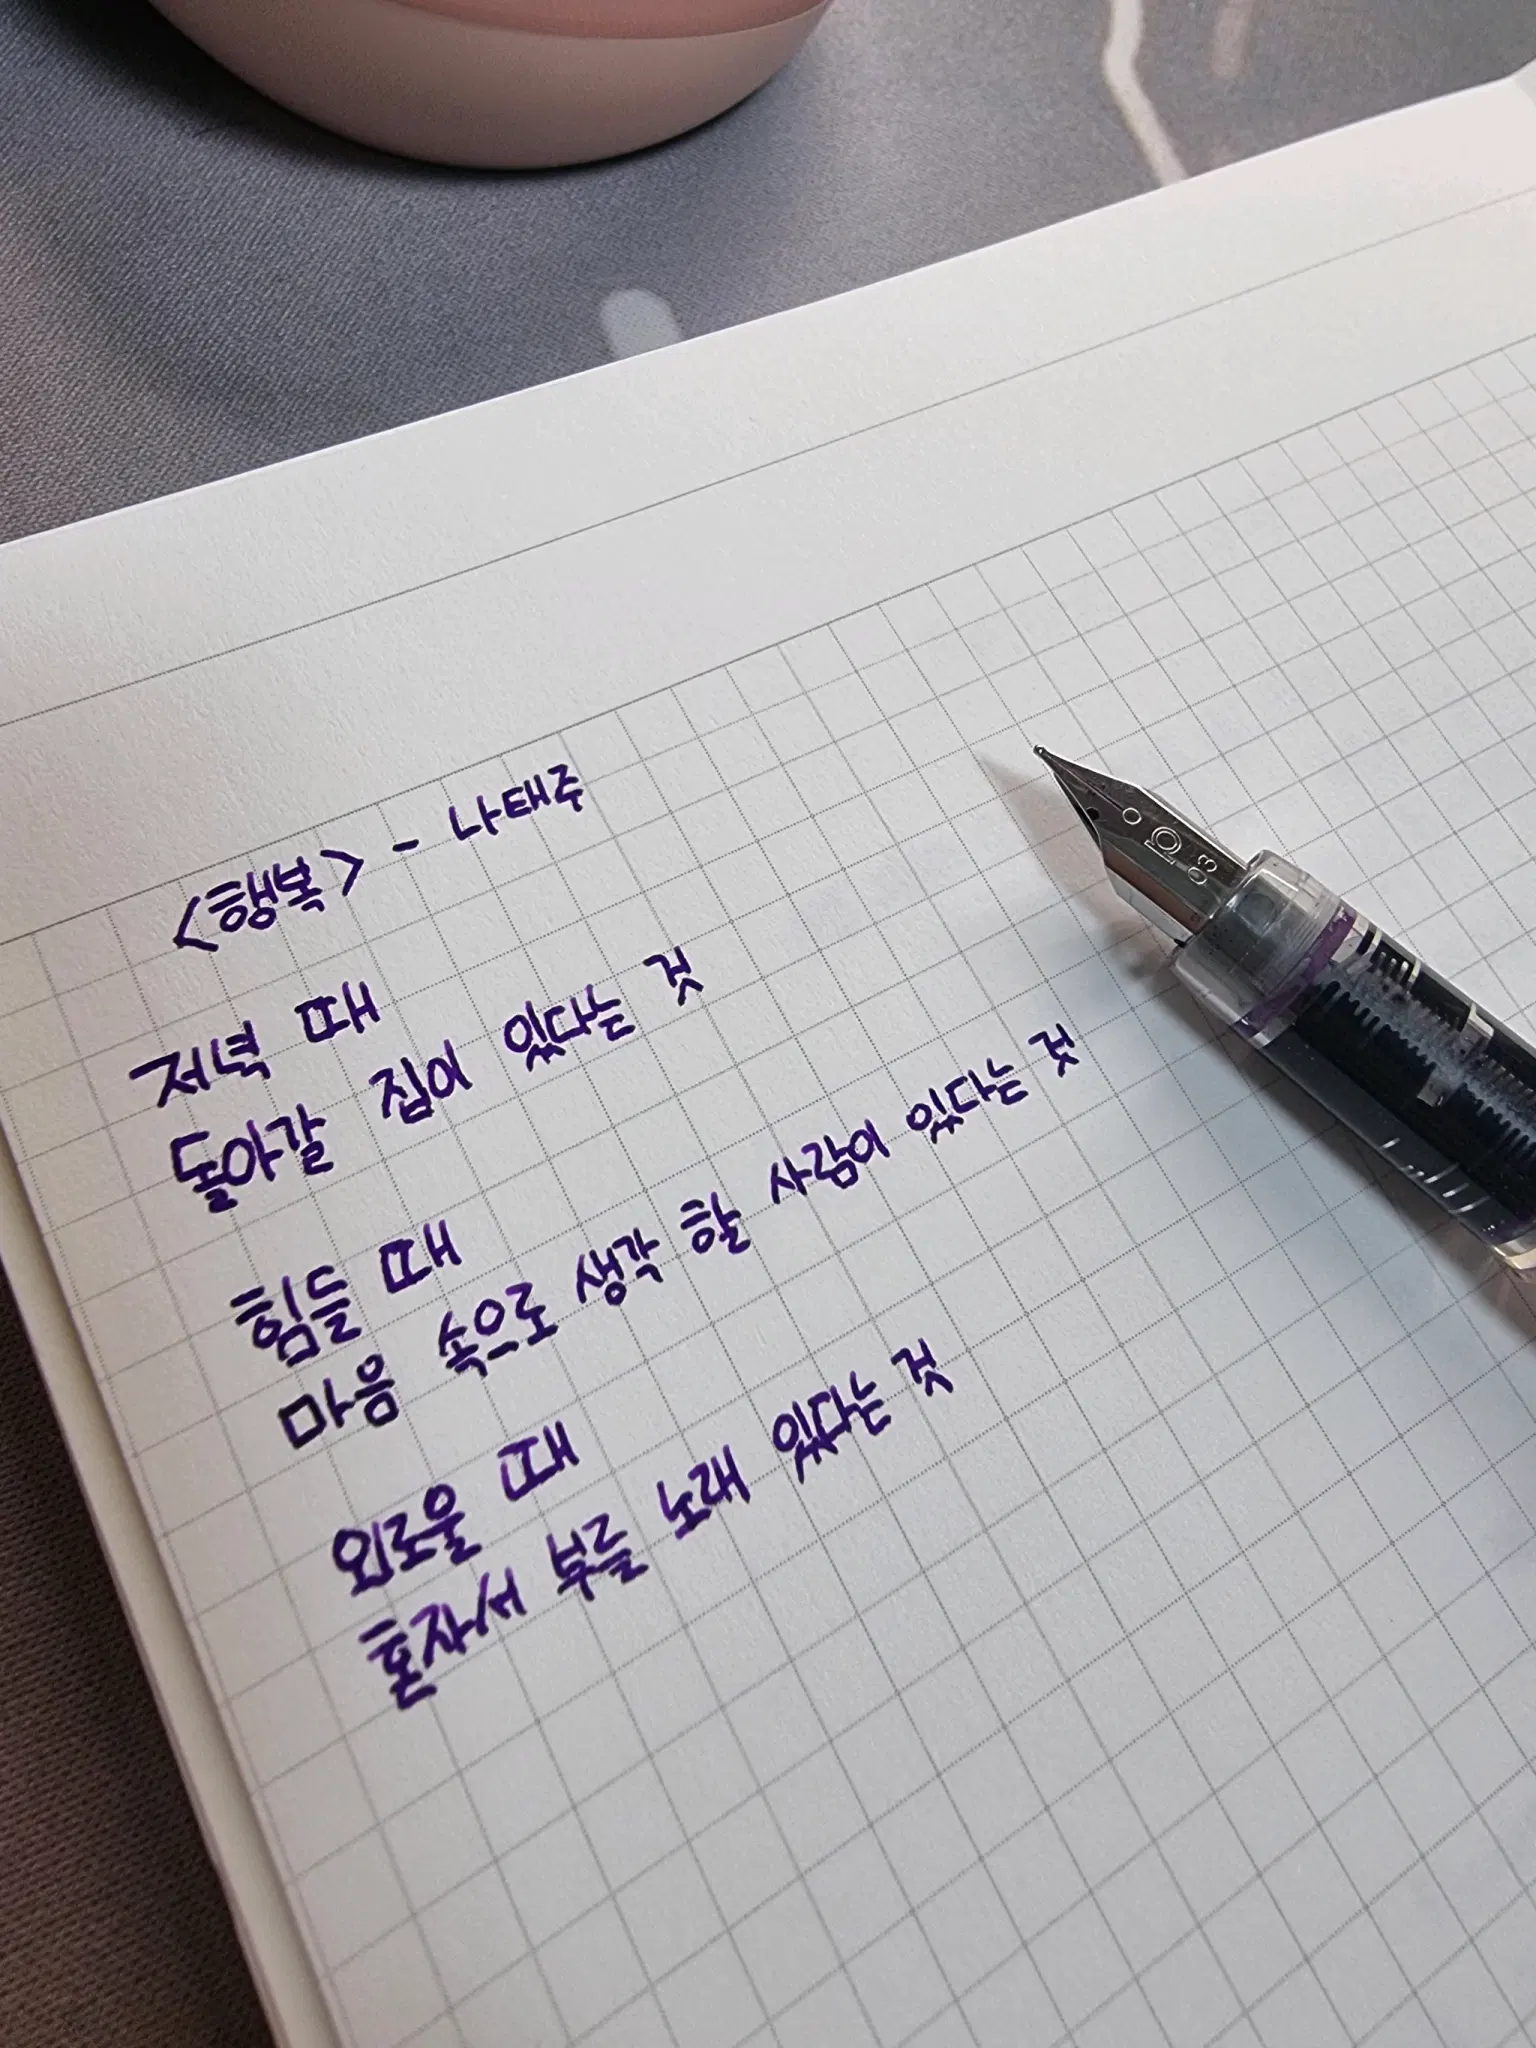 <행복> - 나태주
저녁 때
돌아갈 집이 있다는 것
힘들 때
마음 속으로 생각 할 사람이 있다는 것
외로울 때
혼자서 부를 노래 있다는 것
03